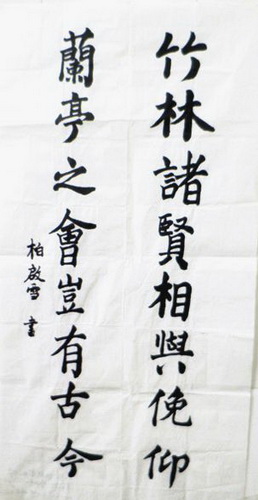 竹林諸賢相與俛仰
蘭亭之會豈有古今
柏啟雪書